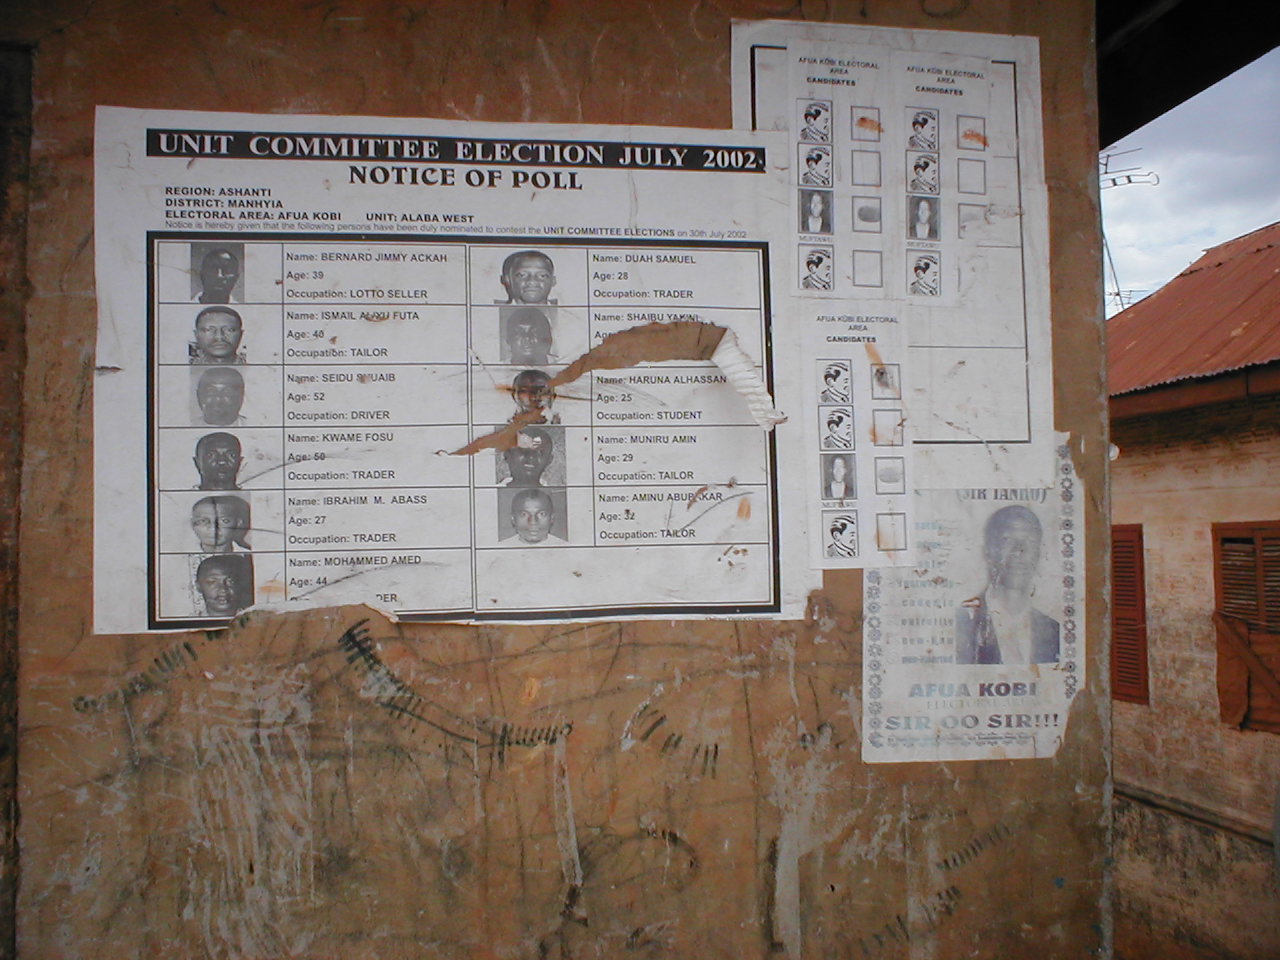 UNIT COMMITTEE ELECTION JULY 2002
NOTICE OF POLL
REGION: ASHANTI
DISTRICT: MANHYIA
ELECTORAL AREA: AFUA KOBI UNIT: ALABA WEST
Notice is hereby given that the following persons have been duly nominated to contest the UNIT COMMITTEE ELECTIONS on 30th July 2002
Name: BERNARD JIMMY ACKAH
Age: 39
Occupation: LOTTO SELLER
Name: ISMAIL FUTA
Age: 40
Occupation: TAILOR
Name: SEIDU
Age: 52
Occupation: DRIVER
Name: KWAME FOSU
Age: 50
Occupation: TRADER
Name: IBRAHIM M. ABASS
Age: 27
Occupation: TRADER
Name: MOHAMMED AMED
Age: 44
DER
Name: DUAH SAMUEL
Age: 28
Occupation: TRADER
Name: SHAIBU YAKINI
Name: HARUNA ALHASSAN
Age: 25
Occupation: STUDENT
Name: MUNIRU AMIN
Age: 29
Occupation: TAILOR
Name: AMINU ABUBAKAR
Age: 32
Occupation: TAILOR
AFUA KÖBI ELECTORAL
AREA
CANDIDATES
AFUA KÖBI ELECTORAL
AREA
CANDIDATES
AFUA KÖBI ELECTORAL
AREA
CANDIDATES
(SIR TANKO)
AFUA KOBI
ELECTORAL AREA
SIR OO SIR!!!